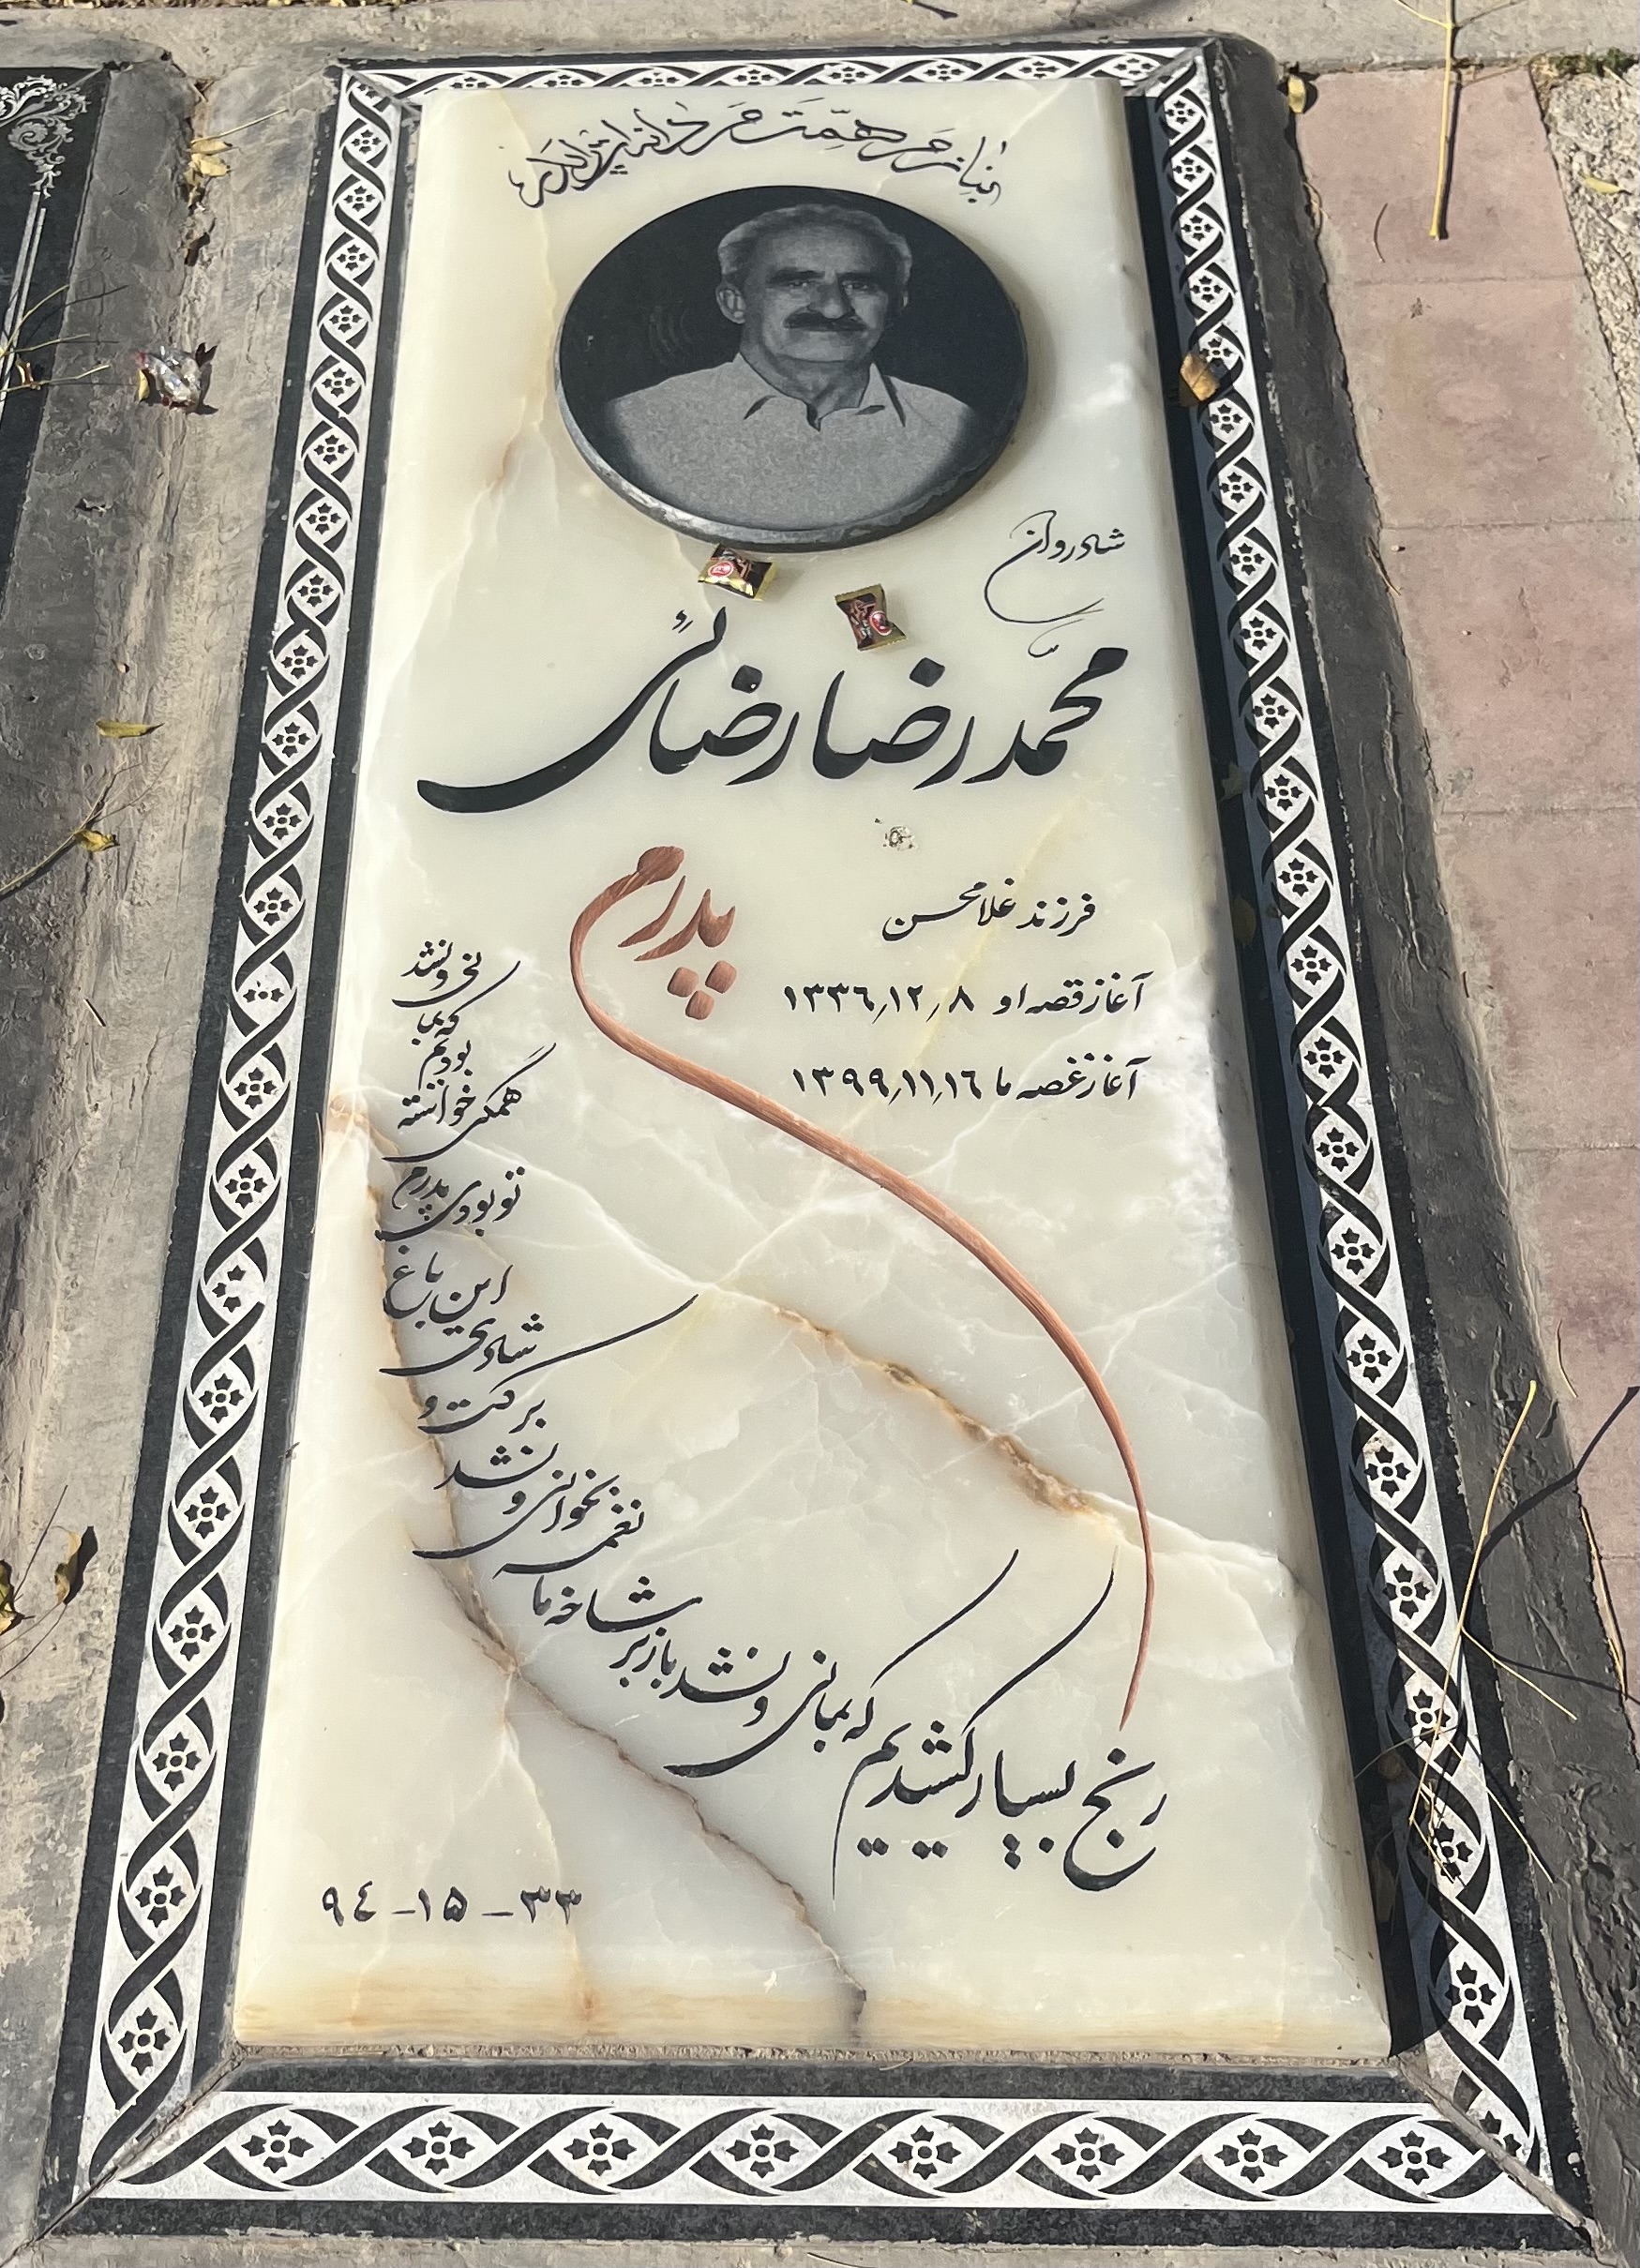 بنازم همّت مردانه‌ات را پدر
شادروان
محمّدرضا رضائی
فرزند غلامحسن
آغاز قصه او ۸/۱۲/۱۳۳۶
آغاز غصه ما ۱۳۹۹/۱۱/۱۶
پدرم
رنج بسیار کشیدیم
که بمانی و نشد
باز بر
شاخه ما
نغمه
بخوانی و نشد
برکت و
شادی
این باغ
تو بودی پدرم
همگی خواسته
بودیم
که بما
نی و نشد
۹٤-۱۵-۳۳